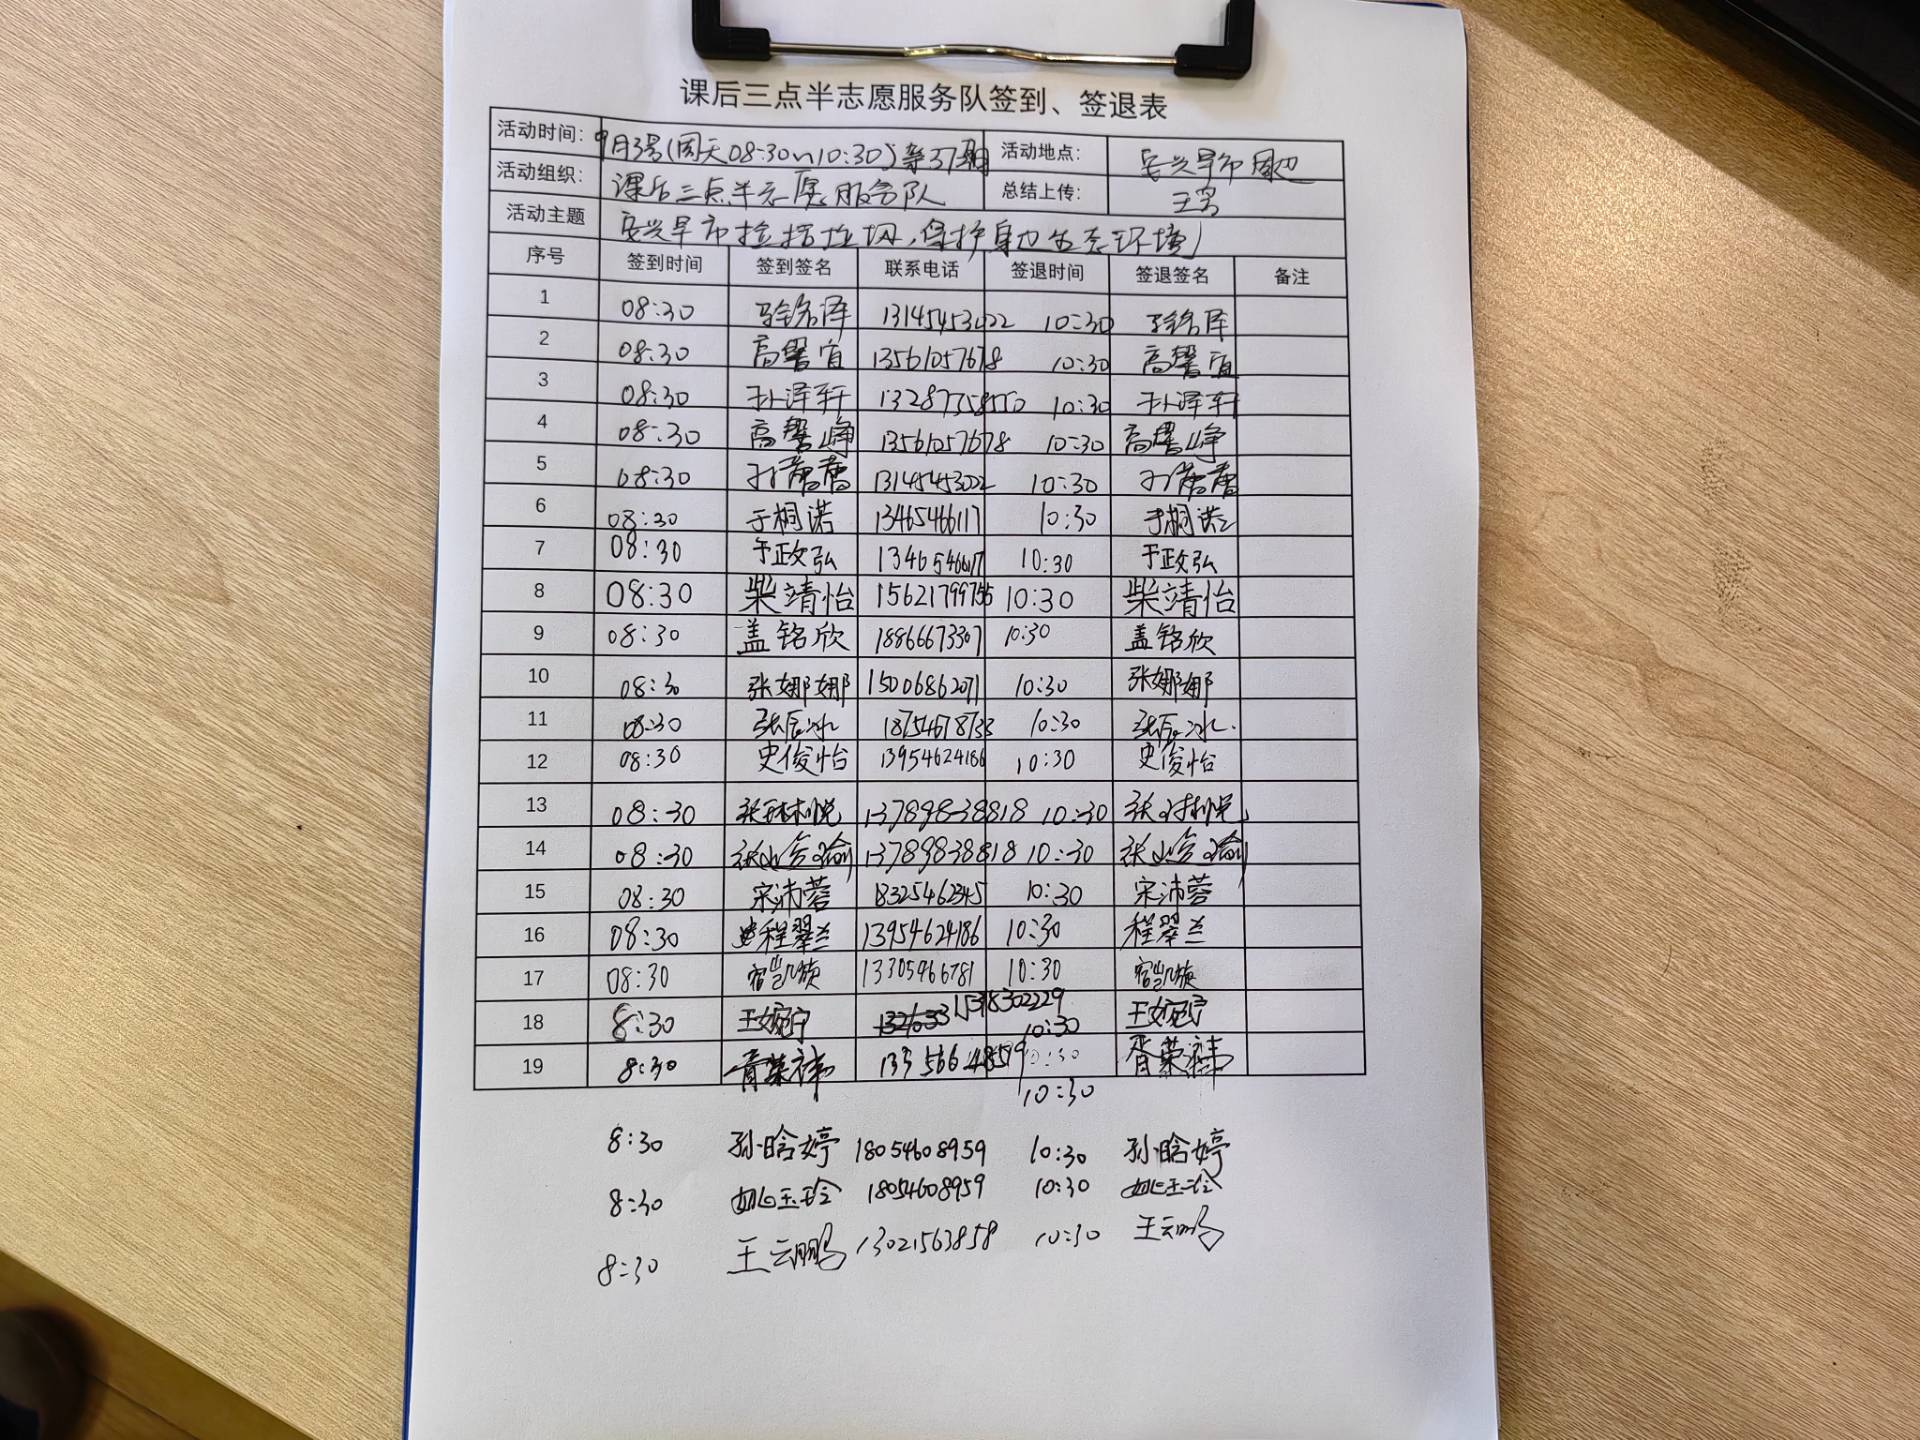 课后三点半志愿服务队签到、签退表
活动时间: 9月3号(周天08:30~10:30)第37期 活动地点: 安兴早市周边
活动组织: 课后三点半志愿服务队 总结上传: 王宫
活动主题 安兴早市捡拾垃圾,保护身边生态环境
序号 签到时间 签到签名 联系电话 签退时间 签退签名 备注
1 08:30 13145453022 10:30
2 08:30 高馨宜 13561057678 10:30 高馨宜
3 08:30 孙泽轩 13287358550 10:30 孙泽轩
4 08:30 高馨峥 13561057678 10:30 高馨峥
5 08:30 13145453022 10:30
6 08:30 于桐诺 13465466117 10:30 于桐诺
7 08:30 于政弘 13465466117 10:30 于政弘
8 08:30 柴靖怡 15621799755 10:30 柴靖怡
9 08:30 盖铭欣 18866673307 10:30 盖铭欣
10 08:30 张娜娜 15006862071 10:30 张娜娜
11 08:30 张辰冰 18754678733 10:30 张辰冰
12 08:30 史俊怡 13954624186 10:30 史俊怡
13 08:30 张琳悦 13789838818 10:30 张琳悦
14 08:30 13789838818 10:30
15 08:30 宋沛蓉 18325462345 10:30 宋沛蓉
16 08:30 程翠兰 13954624186 10:30 程翠兰
17 08:30 宿凯旋 13305466781 10:30 宿凯旋
18 8:30 王婉宁 10:30 王婉宁
19 8:30 13356624859 10:30
10:30
8:30 孙晗婷 18054608959 10:30 孙晗婷
8:30 姚玉玲 18054608959 10:30 姚玉玲
8:30 王云鹏 13021563858 10:30 王云鹏